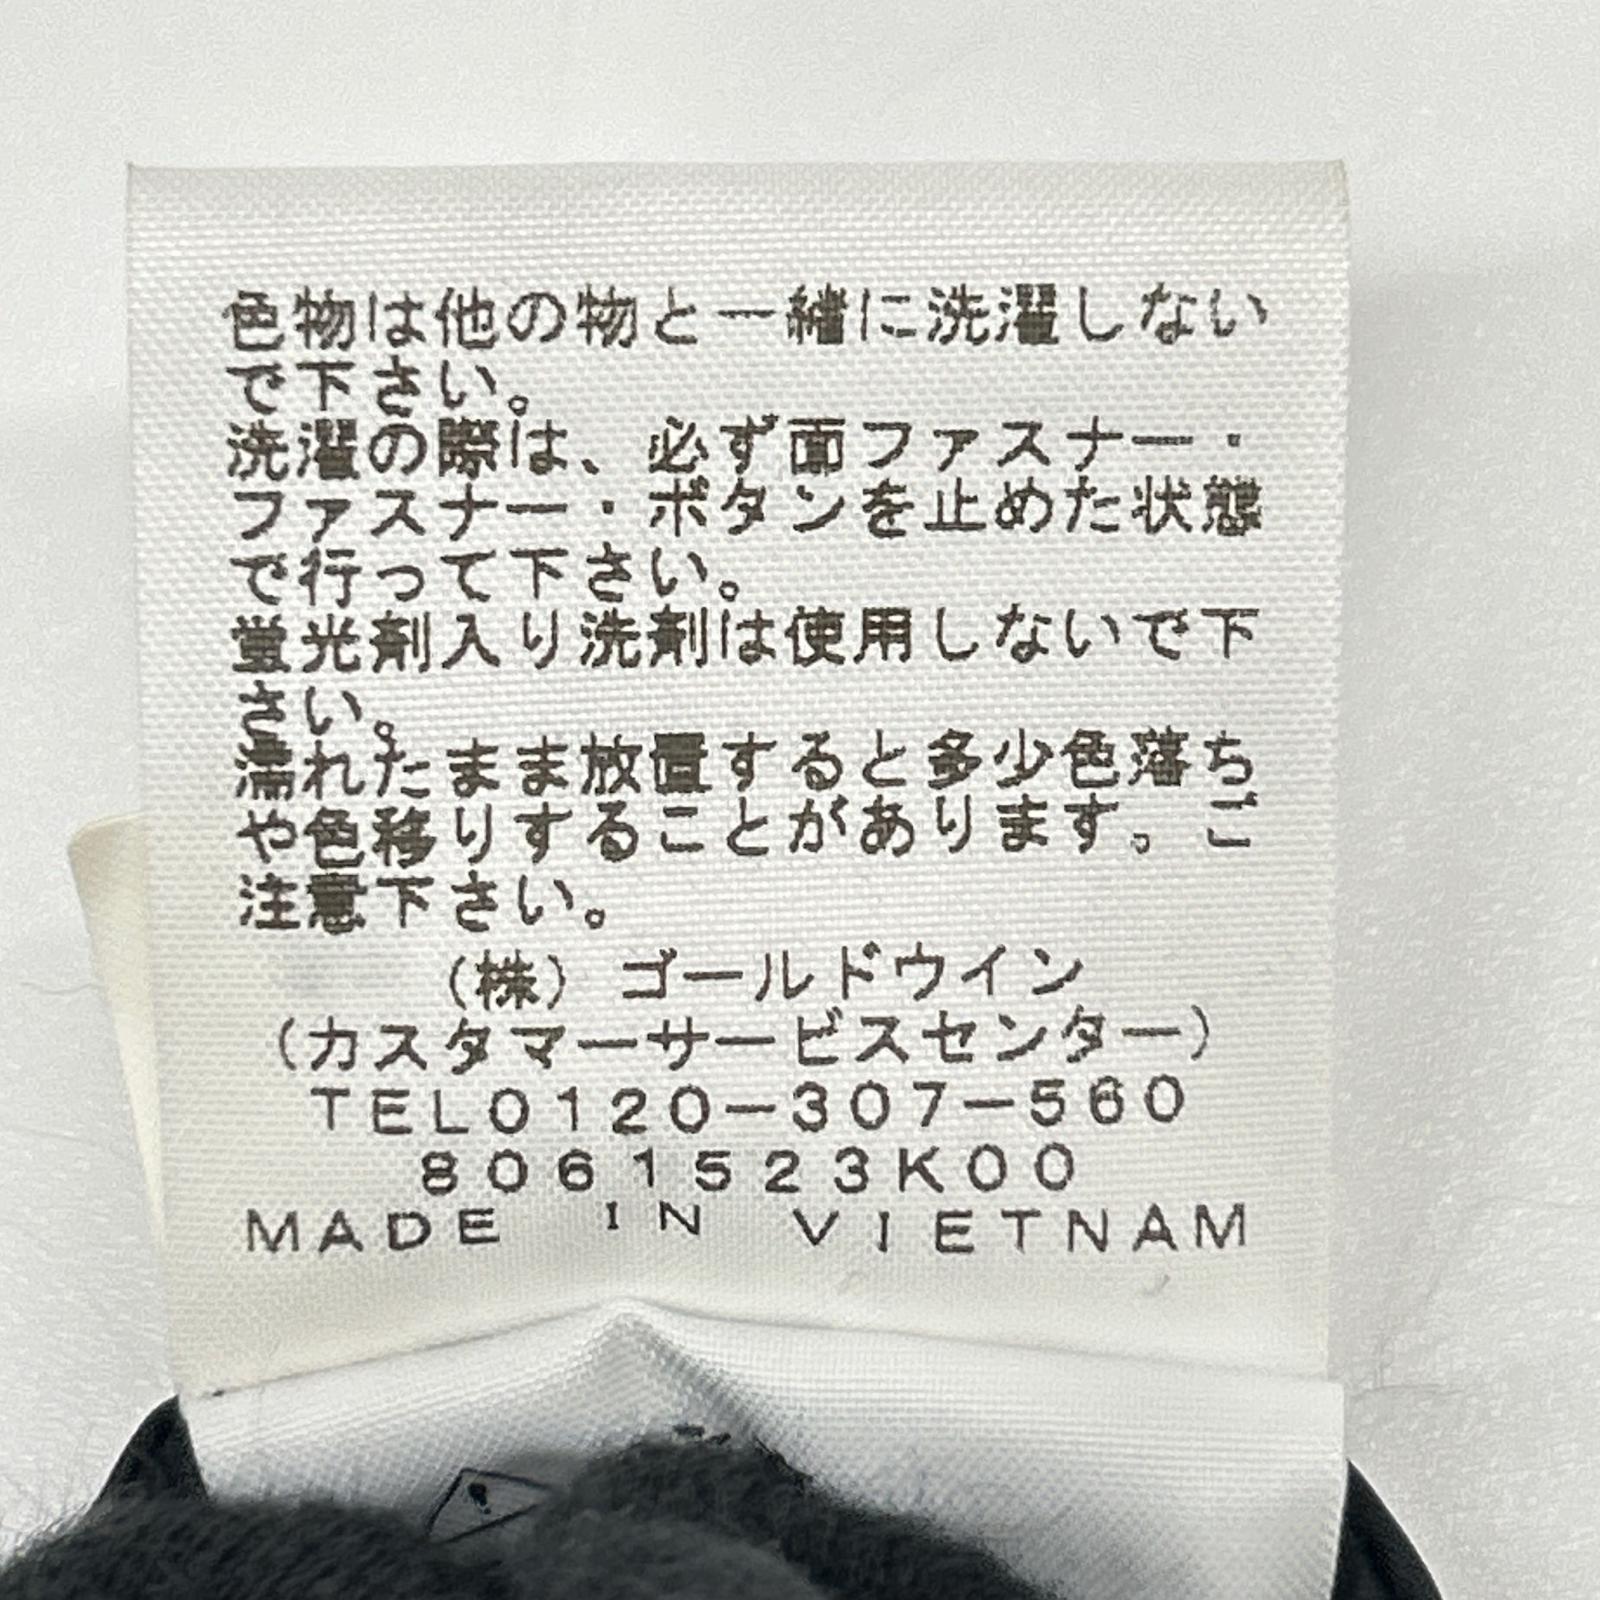 色物は他の物と一緒に洗濯しない
で下さい。
洗濯の際は、必ず面ファスナー・
ファスナー・ボタンを止めた状態
で行って下さい。
蛍光剤入り洗剤は使用しないで下
さい。
濡れたまま放置すると多少色落ち
や色移りすることがあります。ご
注意下さい。
(株)ゴールドウイン
(カスタマーサービスセンター)
TEL0120-307-560
8061523K00
MADE IN VIETNAM